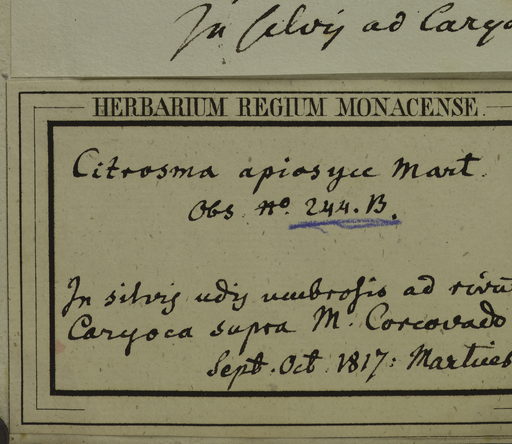 In silvis ad Caryo
HERBARIUM REGIUM MONACENSE.
Citrosma apiosyce Mart.
Obs. No. 244. B.
In silvis udis umbrosis ad rivu
Caryoca supra M. Corcovado
Sept. Oct. 1817: Martius